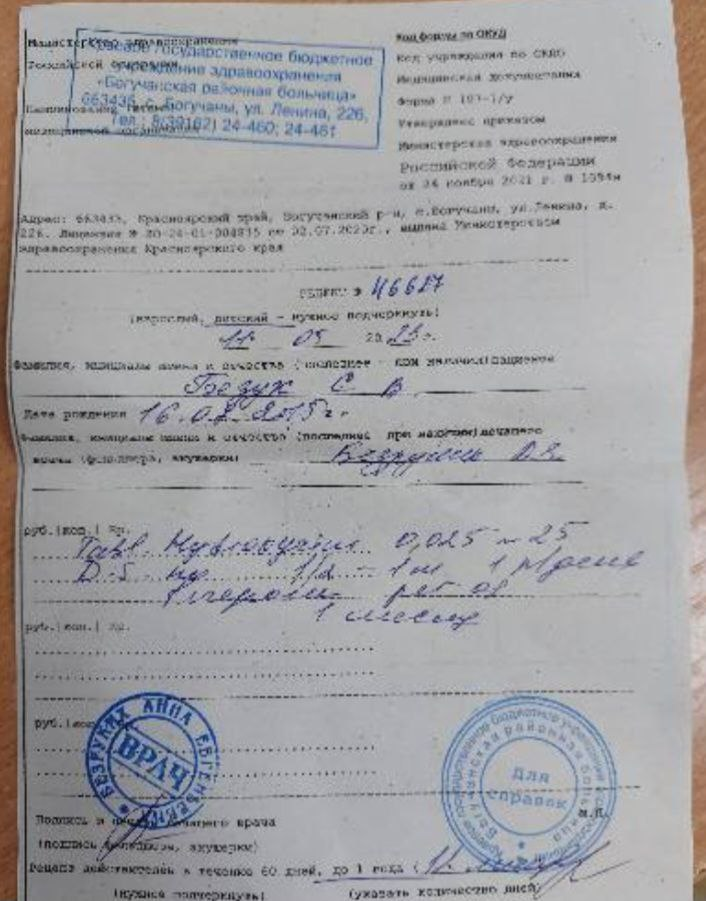 Министерство здравоохранения
Российской Федерации
Красвое государственное бюджетное
учреждение здравоохранения
«Богучанская районная больница»
663430, с. Богучаны, ул. Ленина, 226,
Тел.: 8(39162) 24-460; 24-461
Наименование
медицинской организации
Код формы по ОКУД
Код учреждения по ОКПО
Медицинская документация
Форма N 107-1/у
Утверждена приказом
Министерства здравоохранения
Российской Федерации
от 24 ноября 2021 г. N 1094н
Адрес: Красноярский край, Богучанский р-н, с.Богучаны, ул.Ленина, д.
226. Лицензия № ЛО-24-01-004835 от 02.07.2020г., выдана Министерством
здравоохранения Красноярского края
РЕЦЕПТ № 46627
(взрослый, детский - нужное подчеркнуть)
11 05 20 23 г.
Фамилия, инициалы имени и отчества (последнее - при наличии) пациента
С В
Дата рождения 16.02.2015г.
Фамилия, инициалы имени и отчества (последнее при наличии) лечащего
врача (фельдшера, акушерки)
руб.|коп.| Rp.
Tabl. Hydroxyzini 0,025 N 25
D.S. по 1/2 - 1 т 1 р/день
per os
1 месяц
руб.|коп.| Rp.
руб.|коп.
БЕЗРУКИХ АННА ЕВГЕНЬЕВНА
ВРАЧ
Богучанская районная больница
Для
справок
М.П.
Подпись и печать лечащего врача
(подпись фельдшера, акушерки)
Рецепт действителен в течение 60 дней, до 1 года (
(нужное подчеркнуть) (указать количество дней)